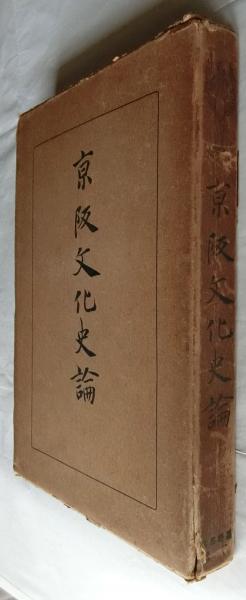 京阪文化史論
京阪文化史論